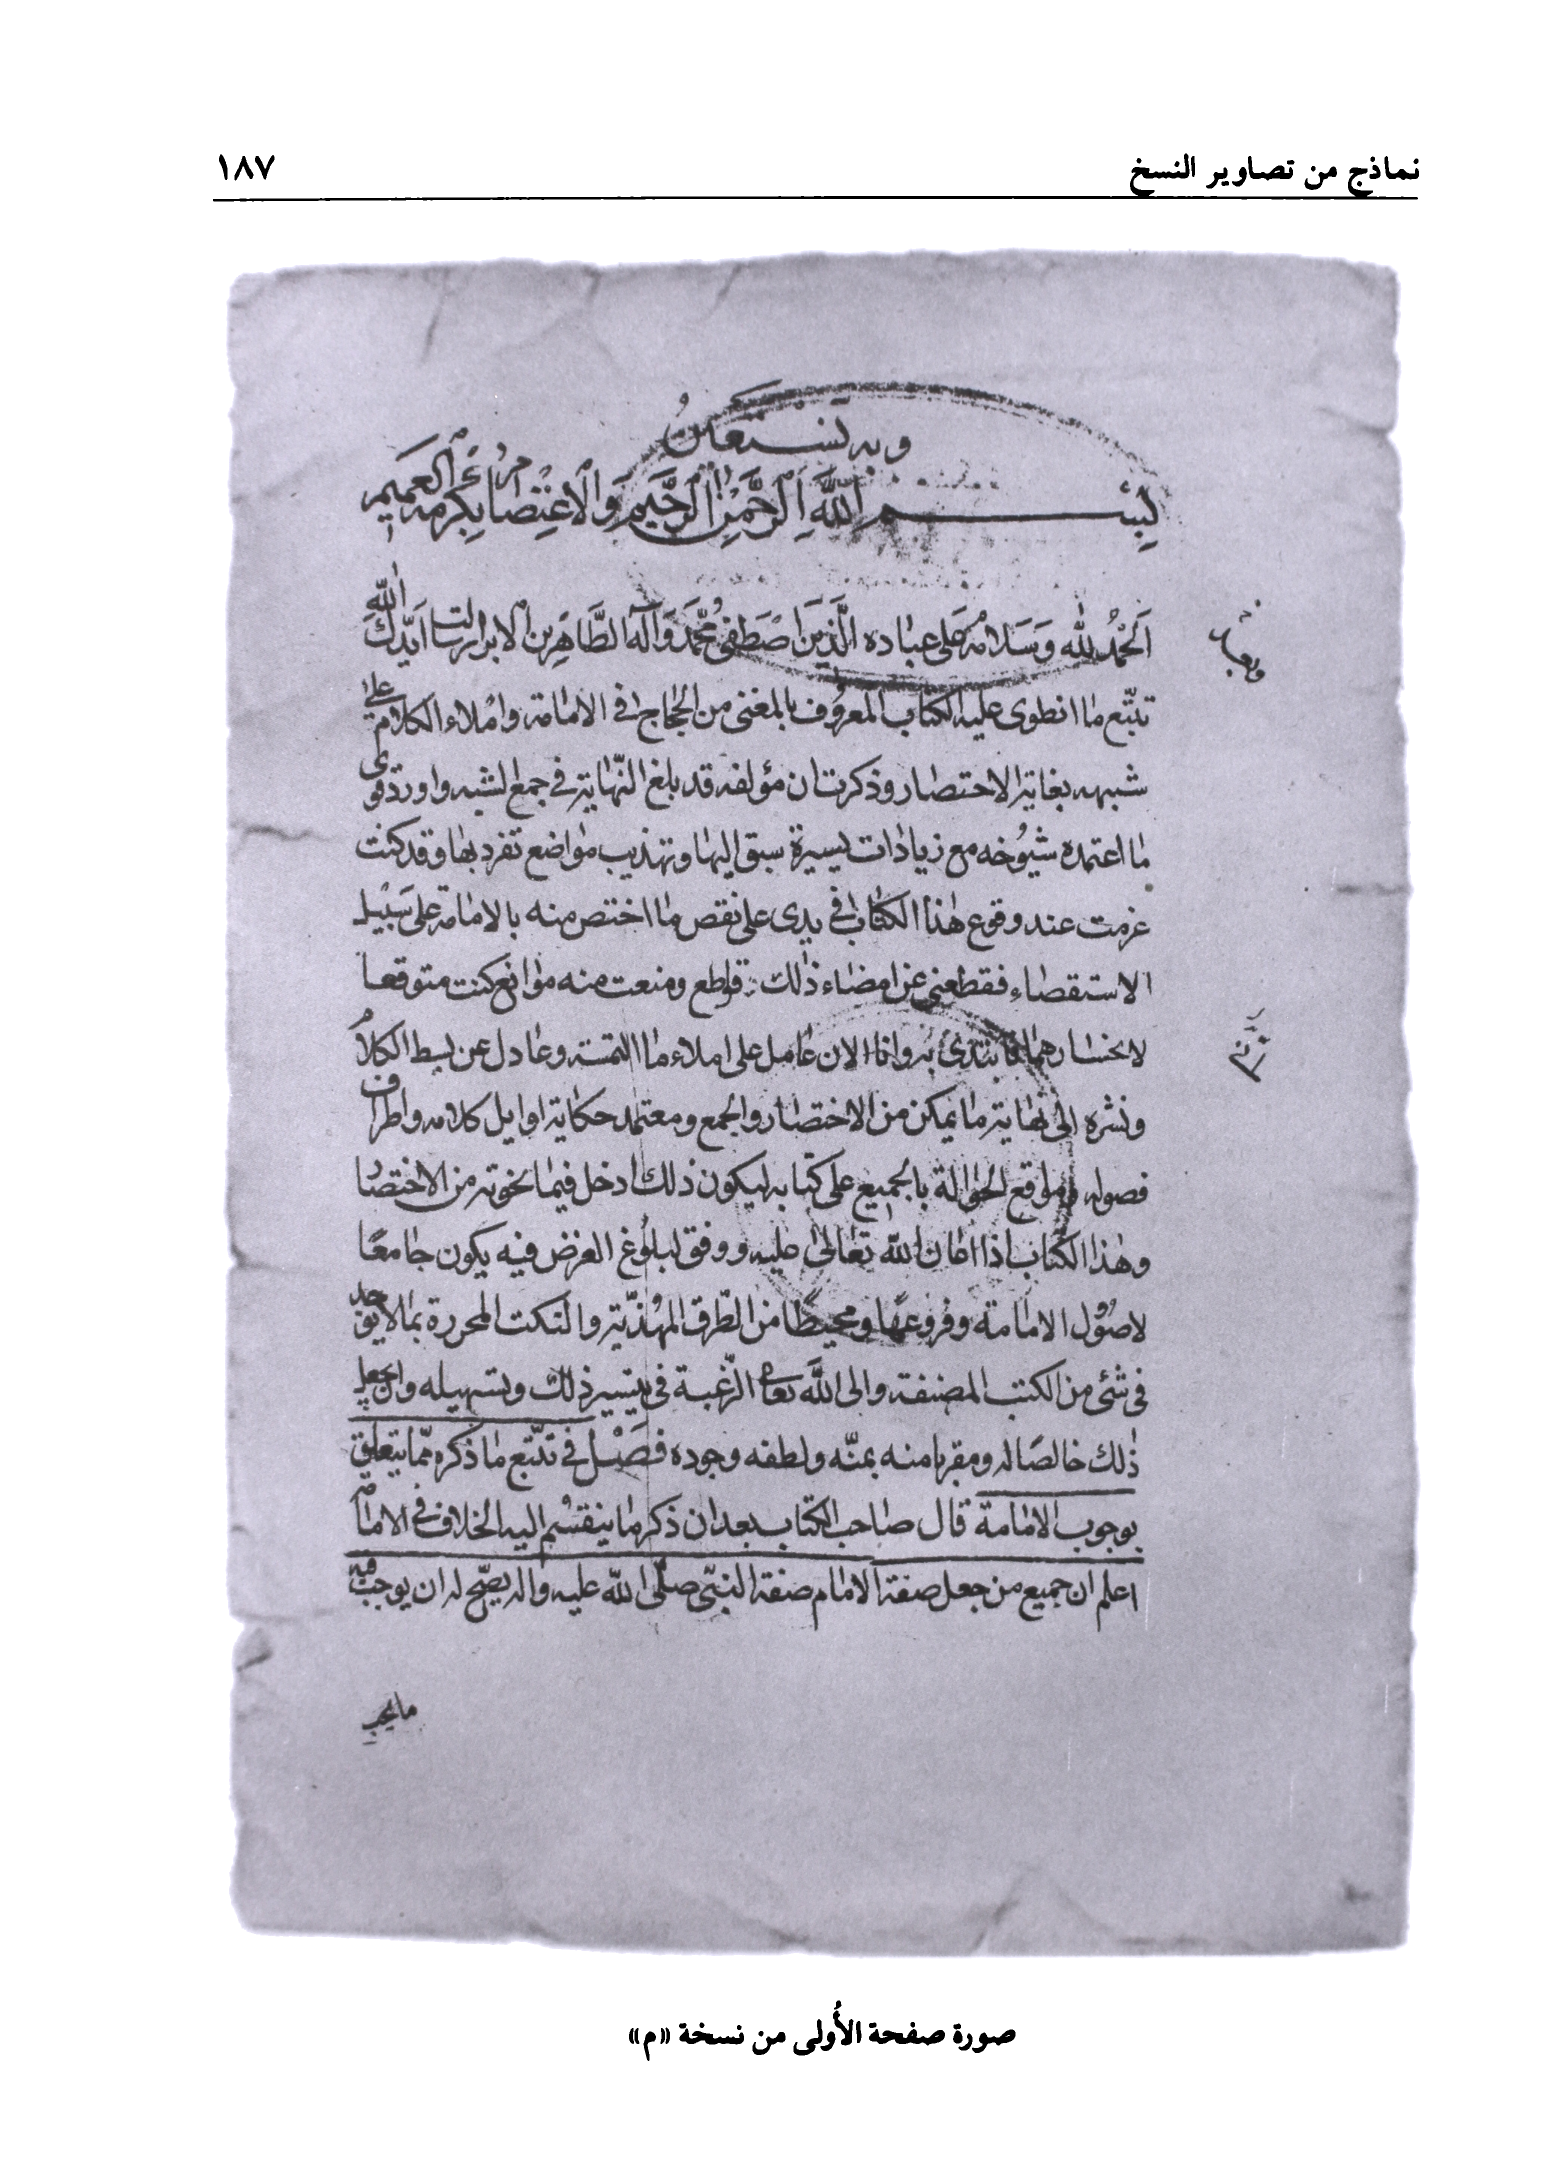 نماذج من تصاوير النسخ
١٨٧
وبه نستعين
بسم الله الرحمن الرحيم والاعتصام بكرمه العميم
الحمد لله وسلامه على عباده الذين اصطفى محمد وآله الطاهرين الابرار سالت ايدك الله
تتبع ما انطوى عليه الكتاب المعروف بالمغنى من الحجاج في الامامة واملاء الكلام على
شبهه بغاية الاختصار وذكرت ان مؤلفه قد بلغ النهاية في جمع الشبه واورد قوى
ما اعتمده شيوخه مع زيادات يسيرة سبق اليها وتهذيب مواضع تفرد بها وقد كنت
عزمت عند وقوع هذا الكتاب في يدى على نقض ما اختص منه بالامامة على سبيل
الاستقصاء فقطعنى عن امضاء ذلك قواطع ومنعت منه موانع كنت متوقعا
لانحسارهما فابتدئ به وانا الان عامل على املاء ما التمسته وعادل عن بسط الكلام
ونشره الى نهاية ما يمكن من الاختصار والجمع ومعتمد حكاية اوايل كلامه واطراف
فصوله ومواقع الحوالة بالجميع على كتابه ليكون ذلك ادخل فيما نحوته من الاختصا
وهذا الكتاب اذا اعان الله تعالى عليه ووفق لبلوغ الغرض فيه يكون جامعا
لاصول الامامة وفروعها ومحيطا من الطرق المهذبة والنكت المحررة بما لا يوجد
في شئ من الكتب المصنفة والى الله تعالى الرغبة في تيسير ذلك وتسهيله وان يجعل
ذلك خالصا له ومقربا منه بمنه ولطفه وجوده فصل في تتبع ما ذكره مما يتعلق
بوجوب الامامة قال صاحب الكتاب بعد ان ذكر ما ينقسم اليه الخلاف في الامامة
اعلم ان جميع من جعل صفة الامام صفة النبى صلى الله عليه واله يصح له ان يوجب فيه
ما يجب
صورة صفحة الأُولى من نسخة «م»